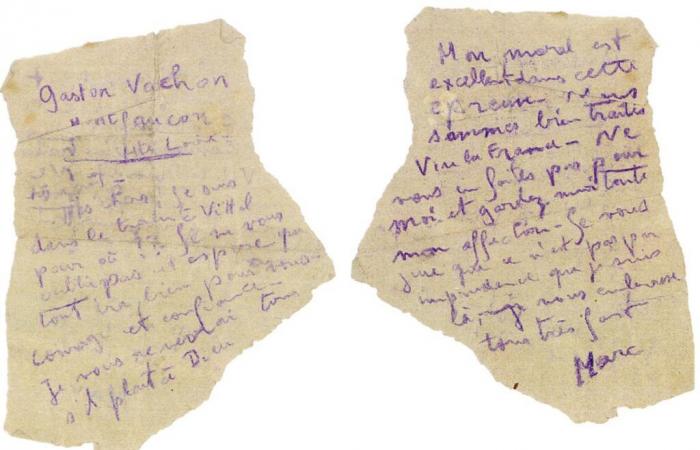 Gaston Vachon
Montfaucon
Hte Loire
Mes chers, je suis
dans le train à Vittel
pour où ? Je ne vous
oublie pas et espère que
tout ira bien pour vous.
courage et confiance
Je vous reverrai tous
s'il plait à Dieu
Mon moral est
excellent dans cette
épreuve. Nous
sommes bien traités
Vive la France. Ne
vous en faites pas pour
moi et gardez moi toute
mon affection. Je vous
jure que ce n'est pas par
imprudence que je suis
là, je vous embrasse
tous très fort
Marc